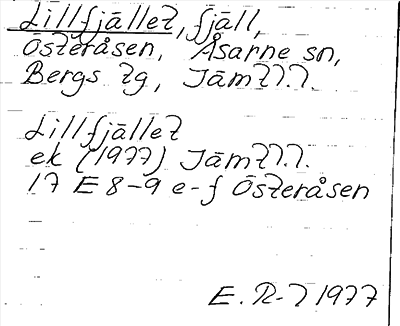 Lillfjället, fjäll,
Österåsen, Åsarne sn,
Bergs tg, Jämtl.l.
Lillfjället
ek (1977) Jämtl.l.
17 E 8-9 e-f Österåsen
E. R-l 1977